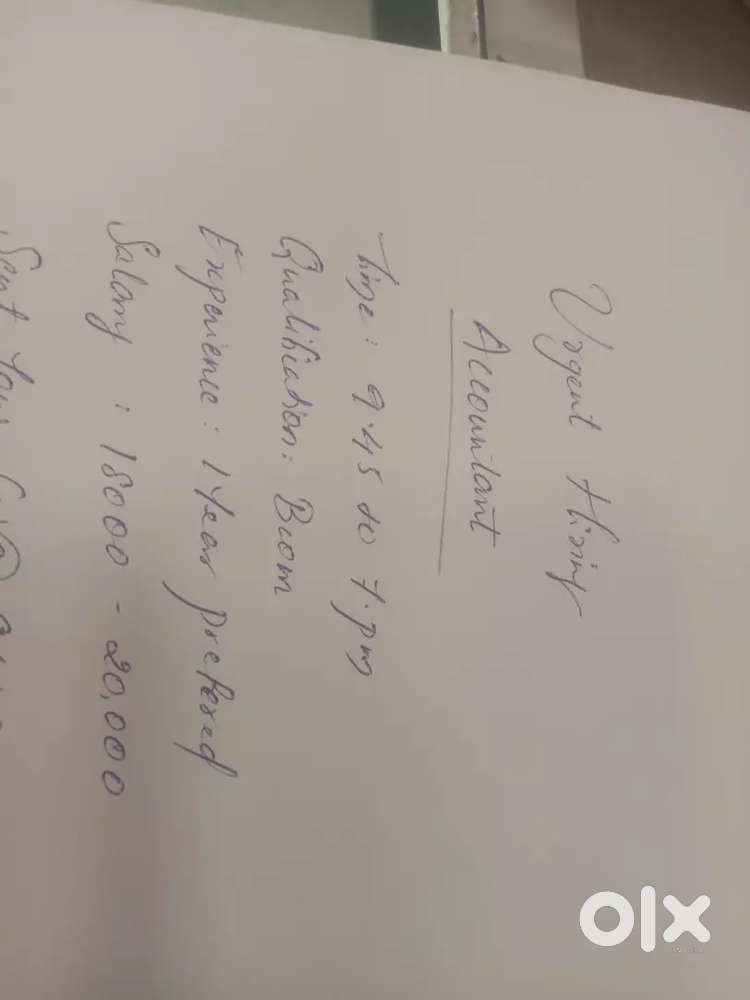 Urgent Hiring
Accountant
Time: 9.45 to 7.pm
Qualification: Bcom
Experience: 1 Year prefered
Salary: 18000 - 20,000
Sent Your C.V @
olx